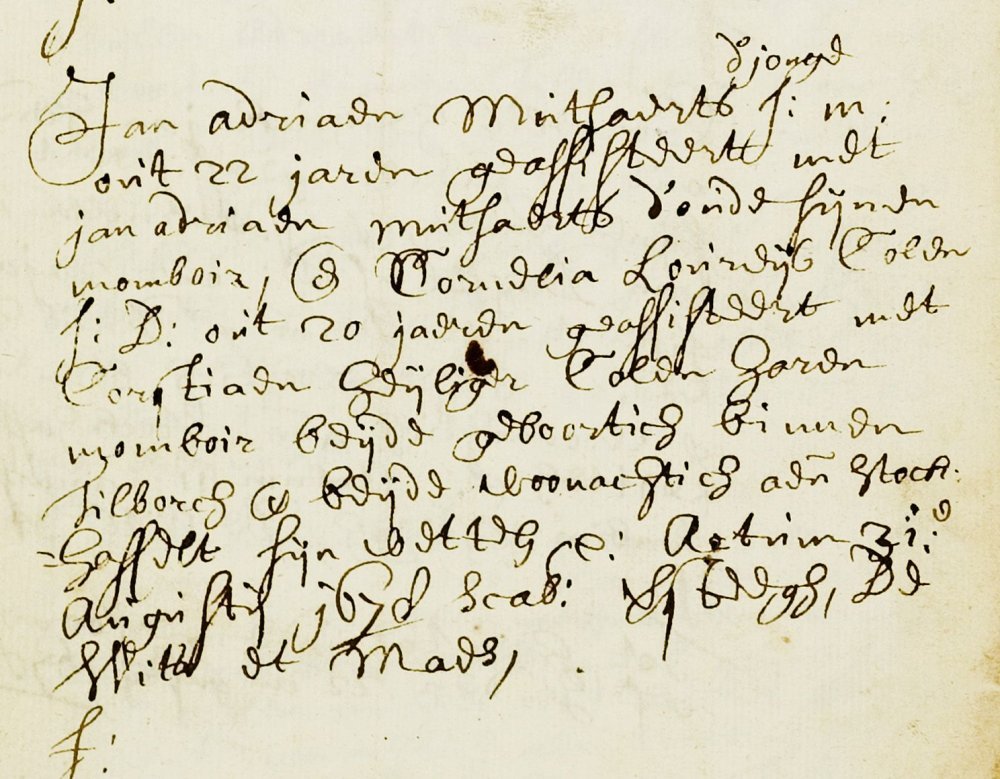 d'jonge
Jan adriaen Mutsaerts J: m:
out 22 jaren geassisteert met
jan adriaen mutsaerts d'oude sijnen
momboir, & Cornelia Loureijs Colen
J: D: out 20 jaeren geassisteert met
Corstiaen Heijliger Colen haren
momboir beijde geboortich binnen
Tilborch & beijde woonachtich aen stock:
=hasselt sijn wetteh &: Actum 21:
Augustij 1678 scab: De
With et Maes,
J: